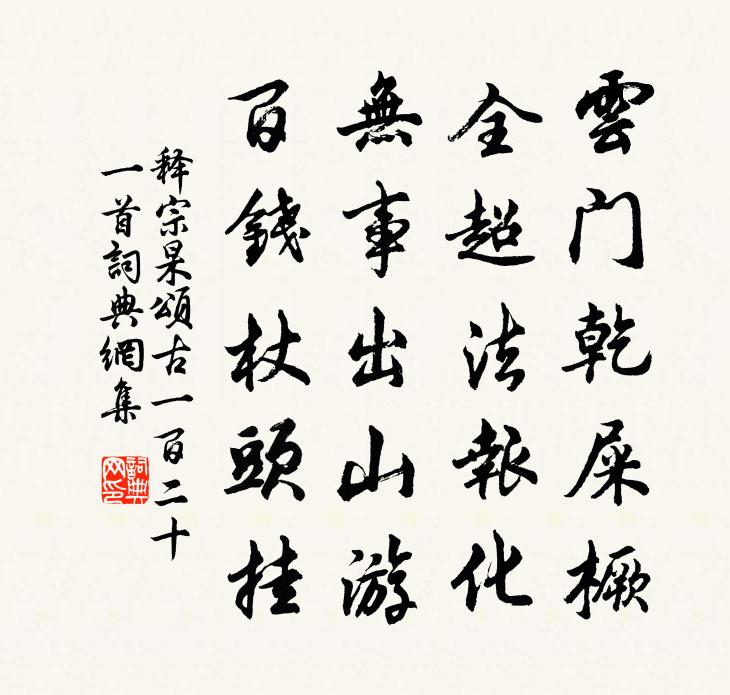 雲門乾屎橛
全超法報化
無事出山游
百錢杖頭挂
释宗杲頌古一百二十
一首詞典網集
詞典网印